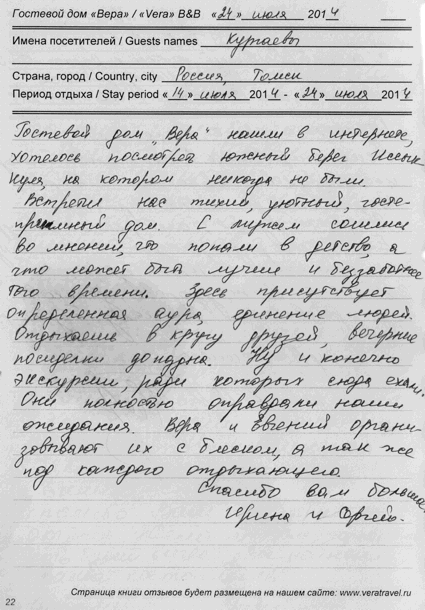 Гостевой дом «Вера» / «Vera» B&B «24» июля 2014
Имена посетителей / Guests names Кургаевы
Страна, город / Country, city Россия, Томск
Период отдыха / Stay period «14» июля 2014 - «24» июля 2014
Гостевой дом "Вера" нашли в интернете,
хотелось посмотреть южный берег Иссык
Куля, на котором никогда не были.
Встретил нас тихий, уютный, госте-
приимный дом. С мужем сошлись
во мнении, что попали в детство, а
что может быть лучше и беззаботнее
того времени. Здесь присутствует
определенная аура, единение людей.
Отдыхаешь в кругу друзей, вечерние
посиделки допоздна. Ну и конечно
экскурсии, ради которых сюда ехали.
Они полностью оправдали наши
ожидания. Вера и Евгений органи-
зовывают их с блеском, а так же
под каждого отдыхающего.
Спасибо вам большое.
Ирина и Сергей.
Страница книги отзывов будет размещена на нашем сайте: www.veratravel.ru
22